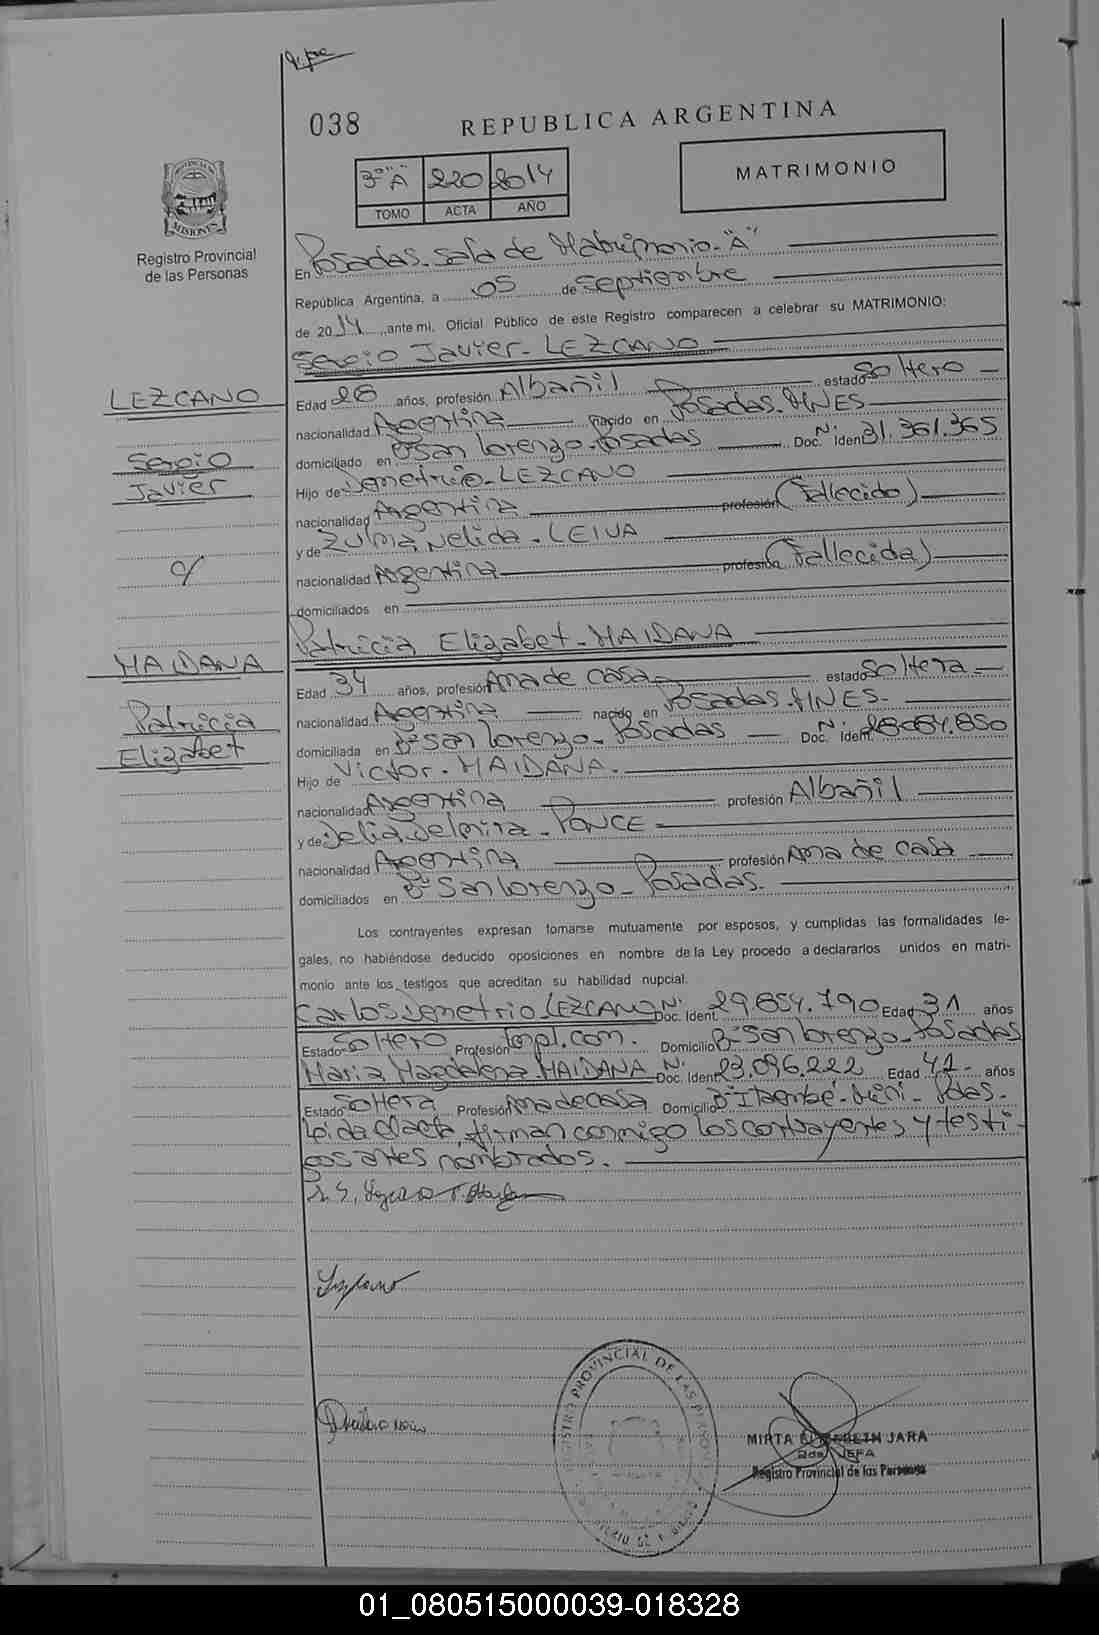 038
REPUBLICA ARGENTINA
3º "A" 220 2014
TOMO ACTA AÑO
MATRIMONIO
MISIONES
Registro Provincial
de las Personas
En Posadas. Sala de Matrimonio "A"
República Argentina, a 05 de Septiembre
de 2014, ante mi, Oficial Público de este Registro comparecen a celebrar su MATRIMONIO:
Sergio Javier - LEZCANO
LEZCANO
Sergio
Javier
c/
MAIDANA
Patricia
Elizabet
Edad 26 años, profesión Albañil estado Soltero
nacionalidad Argentina nacido en Posadas. MNES
domiciliado en Bº San Lorenzo - Posadas Doc. Nº Iden 31.361.365
Hijo de Demetrio - LEZCANO
nacionalidad Argentina profesión (Fallecido)
y de Zulma Nelida - LEIVA
nacionalidad Argentina profesión (Fallecida)
domiciliados en
Patricia Elizabet - MAIDANA
Edad 34 años, profesión Ama de casa estado Soltera
nacionalidad Argentina nacido en Posadas. MNES.
domiciliada en Bº San Lorenzo - Posadas Doc. Nº Ident.
Hijo de Victor - MAIDANA.
nacionalidad Argentina profesión Albañil
y de Delia Delmira - PONCE
nacionalidad Argentina profesión Ama de casa
domiciliados en Bº San Lorenzo - Posadas.
Los contrayentes expresan tomarse mutuamente por esposos, y cumplidas las formalidades le-
gales, no habiéndose deducido oposiciones en nombre de la Ley procedo a declararlos unidos en matri-
monio ante los testigos que acreditan su habilidad nupcial.
Carlos Demetrio LEZCANO Doc. Nº Ident. 29.854.790 Edad 31 años
Estado Soltero Profesión Empl. com. Domicilio Bº San Lorenzo - Posadas
Maria Magdalena MAIDANA Doc. Nº Ident. 23.096.222 Edad 41 años
Estado Soltera Profesión Ama de casa Domicilio Bº Itaembé - Miní - Pdas.
Leida el acta, firman conmigo los contrayentes y testi-
gos antes nombrados.
Lezcano
MIRTA ELIZABETH JARA
2da. JEFA
Registro Provincial de las Personas
REGISTRO PROVINCIAL DE LAS PERSONAS
01_080515000039-018328